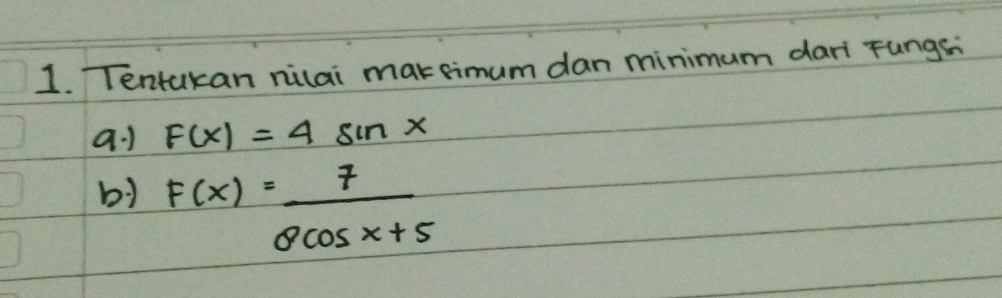 1. Tentukan nilai maksimum dan minimum dari Fungsi
a.) F(x) = 4 sin x
b.) F(x) = 7
8 cos x + 5